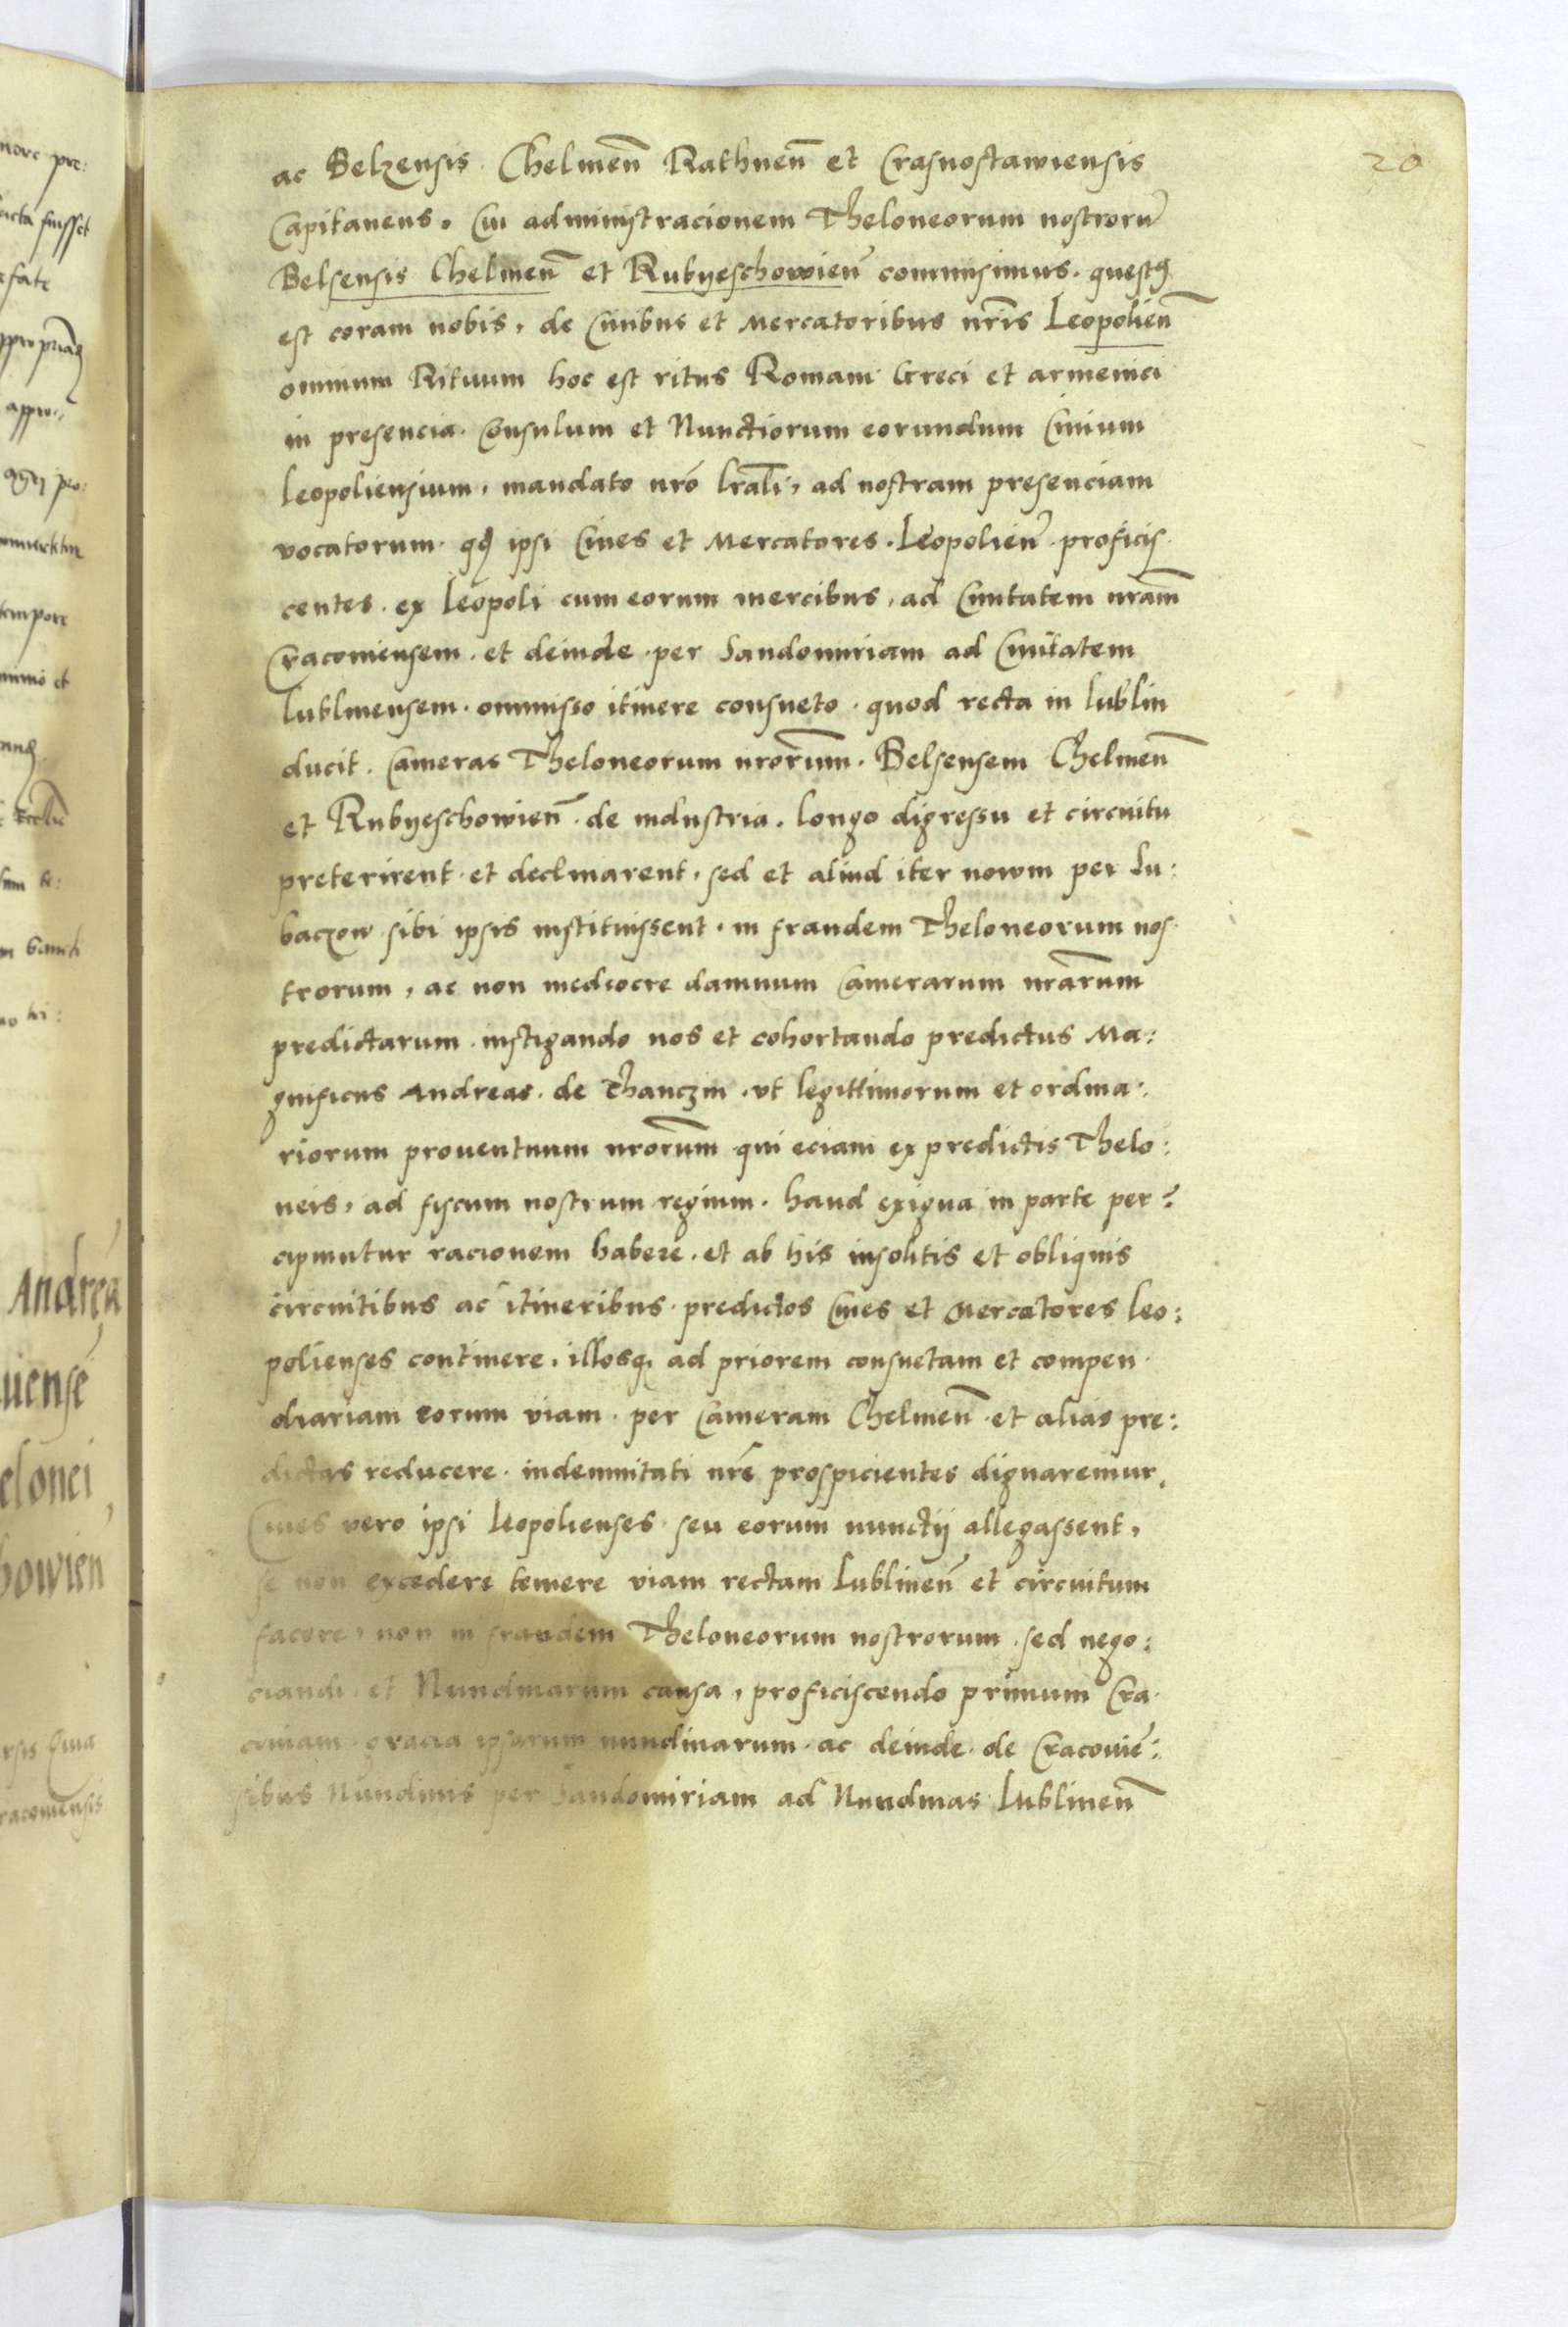 20
ac Belzensis. Chelmeñ Rathneñ et Crasnostawiensis
Capitaneus. Cui administracionem Theloneorum nostrorũ
Belsensis Chelmeñ et Rubyeschowieñ commisimus. questꝰ
est coram nobis, de Ciuibus et Mercatoribus nr̃is Leopolieñ
omnium Rituum hoc est ritus Romani Greci et armenici
in presencia. Consulum et Nunctiorum eorundum Ciuium
leopoliensium, mandato nr̃o lr̃ali, ad nostram presenciam
vocatorum. qđ ipsi Ciues et Mercatores. Leopolieñ. proficis
centes. ex Leopoli cum eorum mercibus, ad Ciuitatem nr̃am
Cracouiensem. et deinde. per Sandomiriam ad Ciuitatem
lublinensem. ommisso itinere consueto. quod recta in lublin
ducit. Cameras Theloneorum nr̃orum. Belsensem Chelmeñ
et Rubyeschowieñ. de industria. longo digressu et circuitu
preterirent. et declinarent, sed et aliud iter nouum per Lu:
baczow sibi ipsis instituissent. in fraudem Theloneorum nos
trorum, ac non mediocre damnum Camerarum nr̃arum
predictarum. instigando nos et cohortando predictus Ma:
gnificus Andreas. de Thanczin. vt legittimorum et ordina:
riorum prouentuum nr̃orum qui eciam ex predictis Thelo:
neis, ad fiscum nostrum regium. haud exigua in parte per:
cipiuntur racionem habere. et ab his insolitis et obliquis
circuitibus ac itineribus. predictos Ciues et Mercatores leo:
polienses continere. illosq̃ ad priorem consuetam et compen
diariam eorum viam. per Cameram Chelmeñ. et alias pre:
dictas reducere. indemnitati nr̃e prospicientes dignaremur.
Ciues vero ipsi leopolienses. seu eorum nunctij allegassent,
se non excedere temere viam rectam Lublineñ et circuitum
facere, non in fraudem Theloneorum nostrorum. sed nego:
ciandi. et Nundinarum causa, proficiscendo primum Cra
couiam. gracia ipsarum nundinarum. ac deinde. de Cracouiẽ:
sibus Nundinis per Sandomiriam ad Nundinas Lublineñ